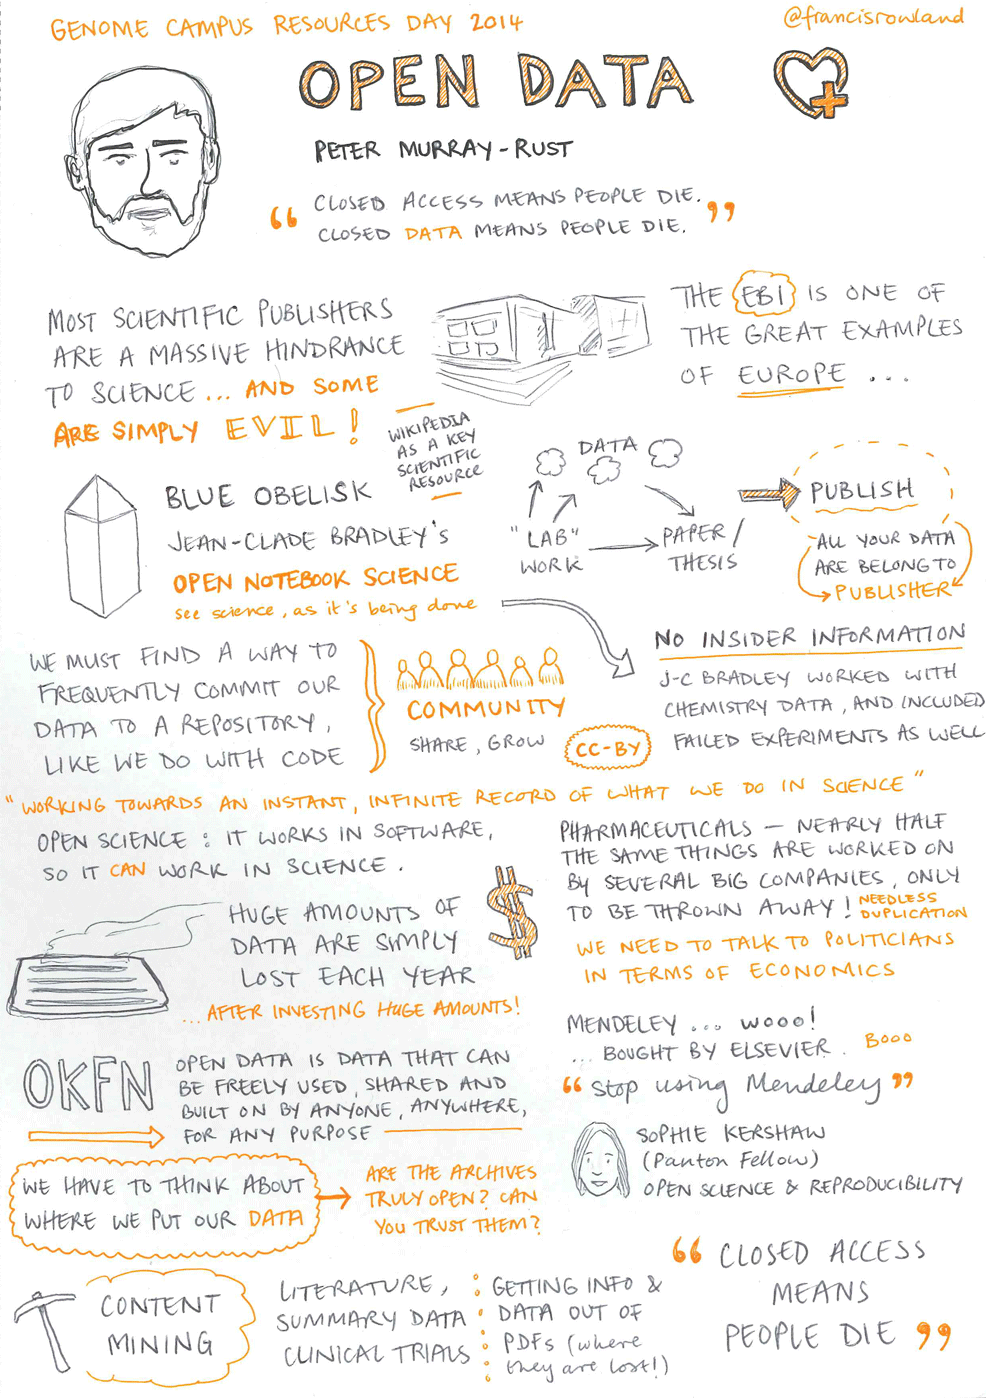 GENOME CAMPUS RESOURCES DAY 2014
@francisrowland
OPEN DATA
PETER MURRAY-RUST
“ CLOSED ACCESS MEANS PEOPLE DIE.
CLOSED DATA MEANS PEOPLE DIE. ”
MOST SCIENTIFIC PUBLISHERS
ARE A MASSIVE HINDRANCE
TO SCIENCE ... AND SOME
ARE SIMPLY EVIL!
THE EBI IS ONE OF
THE GREAT EXAMPLES
OF EUROPE ...
WIKIPEDIA
AS A KEY
SCIENTIFIC
RESOURCE
BLUE OBELISK
JEAN-CLADE BRADLEY'S
OPEN NOTEBOOK SCIENCE
see science, as it's being done
DATA
"LAB"
WORK
PAPER/
THESIS
PUBLISH
ALL YOUR DATA
ARE BELONG TO
PUBLISHER
NO INSIDER INFORMATION
J-C BRADLEY WORKED WITH
CHEMISTRY DATA, AND INCLUDED
FAILED EXPERIMENTS AS WELL
WE MUST FIND A WAY TO
FREQUENTLY COMMIT OUR
DATA TO A REPOSITORY,
LIKE WE DO WITH CODE
COMMUNITY
SHARE, GROW
CC-BY
"WORKING TOWARDS AN INSTANT, INFINITE RECORD OF WHAT WE DO IN SCIENCE"
OPEN SCIENCE: IT WORKS IN SOFTWARE,
SO IT CAN WORK IN SCIENCE.
PHARMACEUTICALS — NEARLY HALF
THE SAME THINGS ARE WORKED ON
BY SEVERAL BIG COMPANIES, ONLY
TO BE THROWN AWAY!
NEEDLESS
DUPLICATION
WE NEED TO TALK TO POLITICIANS
IN TERMS OF ECONOMICS
HUGE AMOUNTS OF
DATA ARE SIMPLY
LOST EACH YEAR
... AFTER INVESTING HUGE AMOUNTS!
$
MENDELEY ... WOOO!
... BOUGHT BY ELSEVIER. BOOO
“ Stop using Mendeley ”
OKFN
OPEN DATA IS DATA THAT CAN
BE FREELY USED, SHARED AND
BUILT ON BY ANYONE, ANYWHERE,
FOR ANY PURPOSE
SOPHIE KERSHAW
(Panton Fellow)
OPEN SCIENCE & REPRODUCIBILITY
WE HAVE TO THINK ABOUT
WHERE WE PUT OUR DATA
ARE THE ARCHIVES
TRULY OPEN? CAN
YOU TRUST THEM?
CONTENT
MINING
LITERATURE,
SUMMARY DATA
CLINICAL TRIALS
GETTING INFO &
DATA OUT OF
PDFs (where
they are lost!)
“ CLOSED ACCESS
MEANS
PEOPLE DIE ”